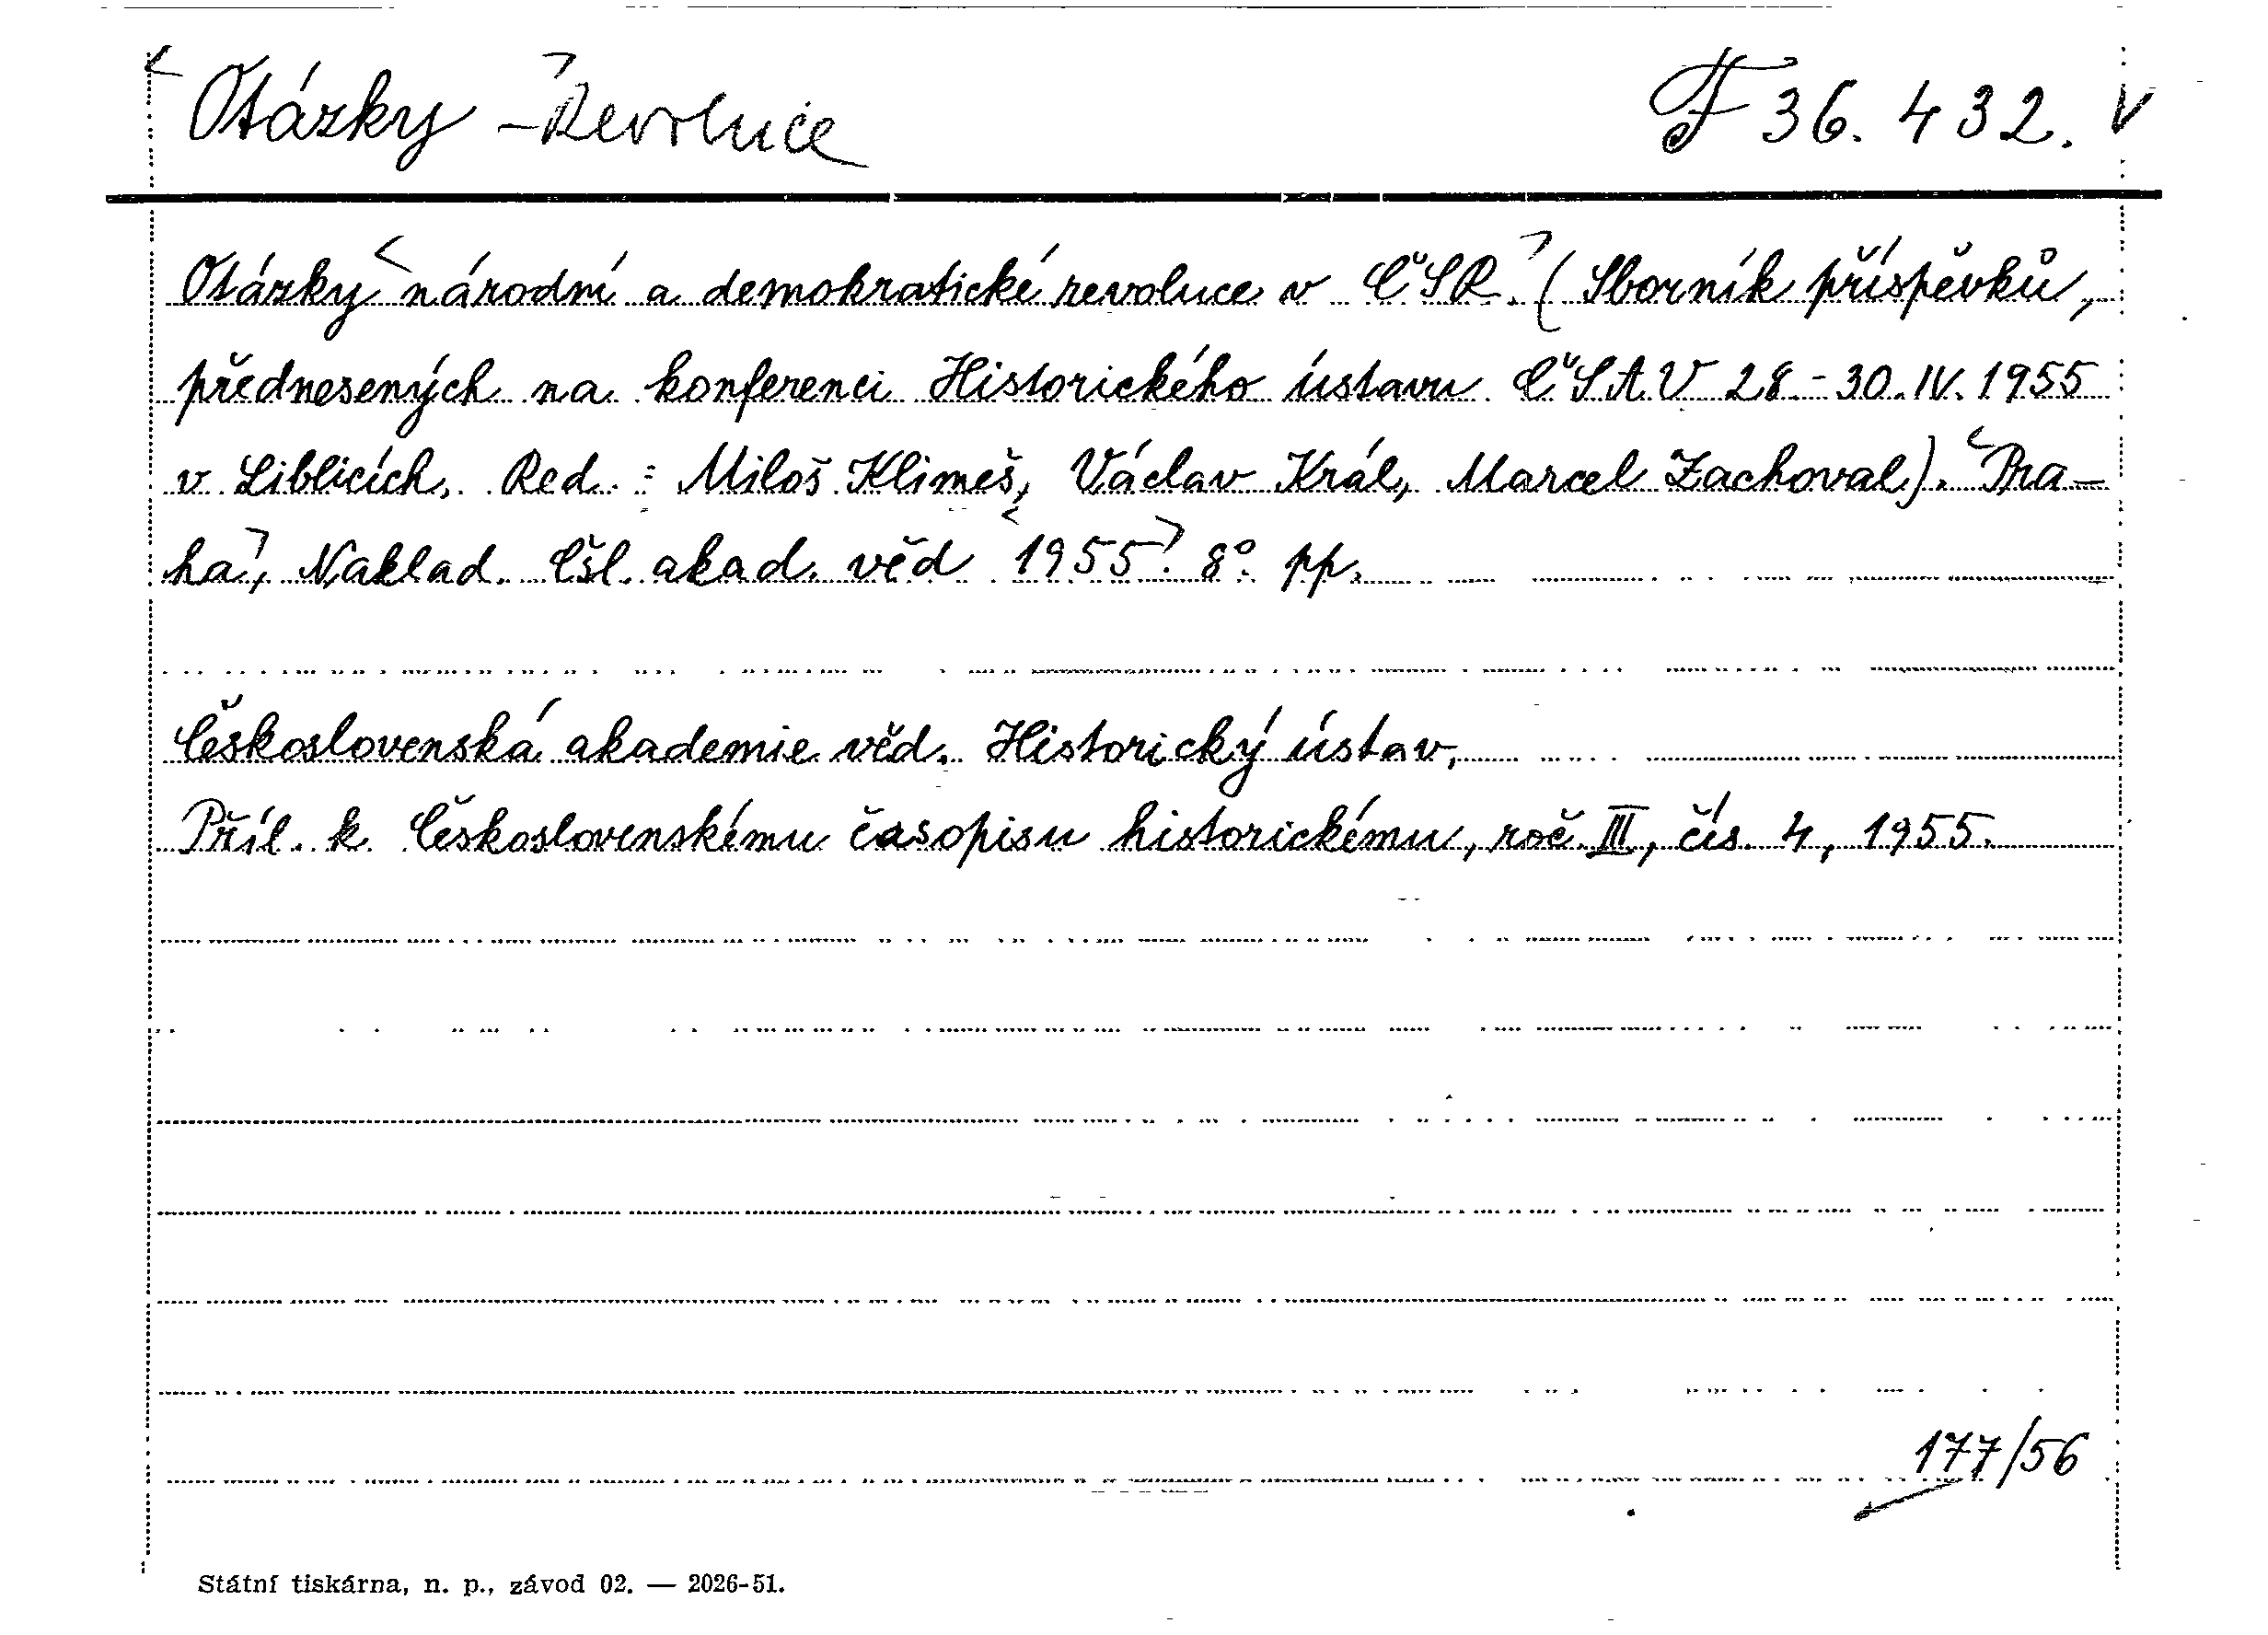 Otázky - Revoluce F 36.432. V
Otázky národní a demokratické revoluce v ČSR. (Sborník příspěvků,
přednesených na konferenci Historického ústavu ČSAV 28.-30.IV.1955
v Liblicích. Red.: Miloš Klimeš, Václav Král, Marcel Zachoval). Pra-
ha, Naklad. Čsl. akad. věd 1955. 8° pp.
Československá akademie věd. Historický ústav.
Příl. k Československému časopisu historickému, roč. III, čís. 4, 1955.
177/56
Státní tiskárna, n. p., závod 02. — 2026-51.